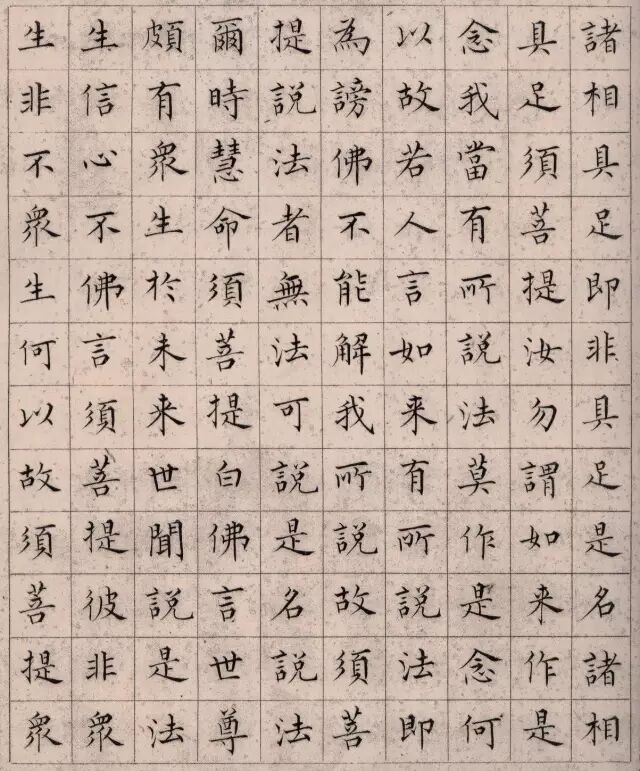 諸相具足即非具足是名諸相
具足須菩提汝勿謂如来作是
念我當有所説法莫作是念何
以故若人言如来有所説法即
為謗佛不能解我所説故須菩
提説法者無法可説是名説法
爾時慧命須菩提白佛言世尊
頗有衆生於未来世聞説是法
生信心不佛言須菩提彼非衆
生非不衆生何以故須菩提衆